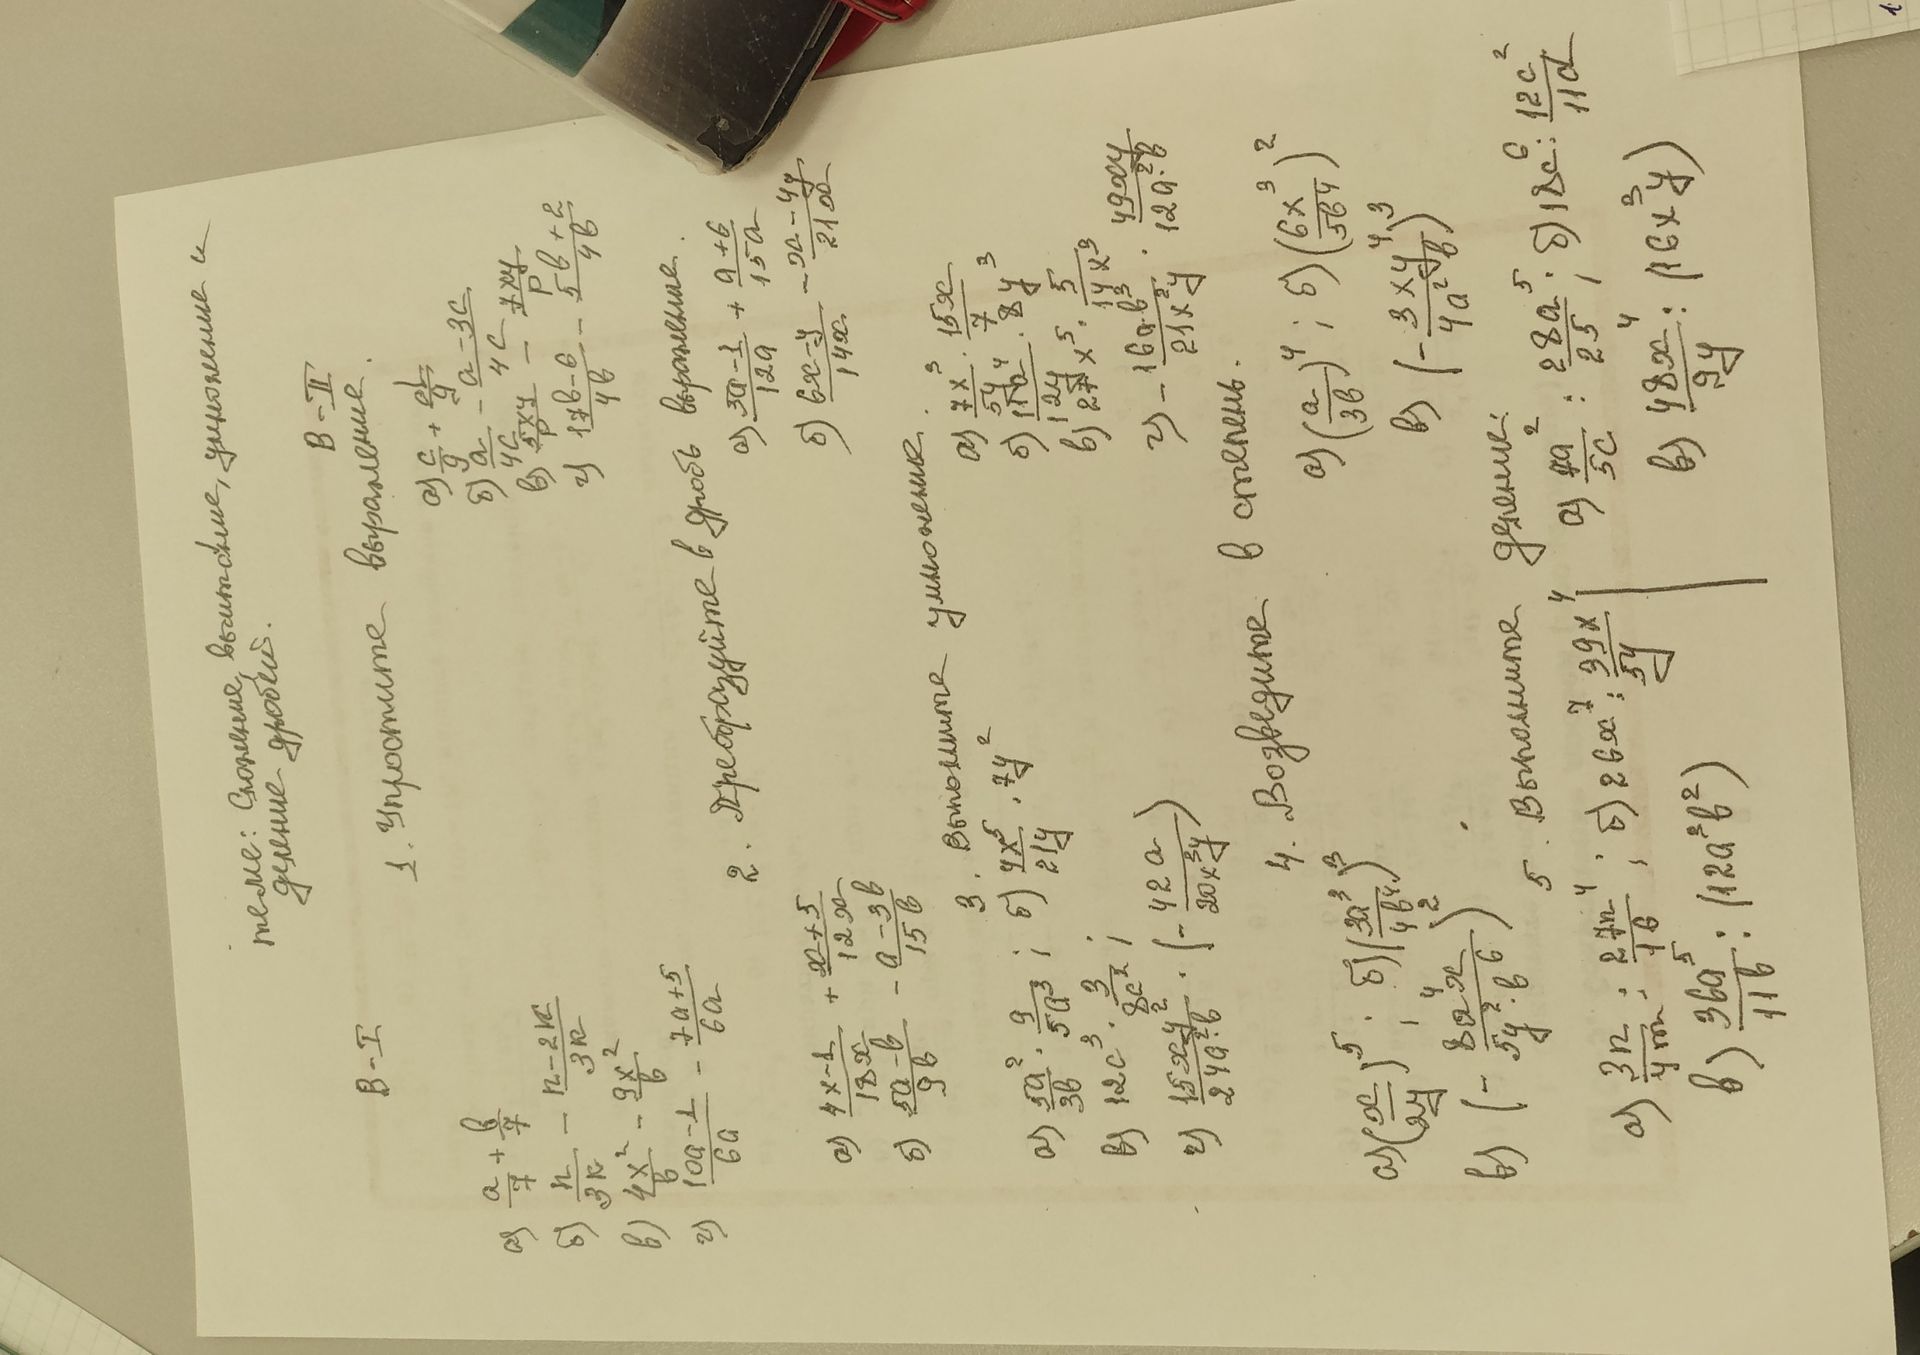 теме: Сложение, вычитание, умножение и
деление дробей.
В-I В-II
1. Упростите выражение.
а) a/7 + b/7
б) n/3k - (n-2k)/3k
в) 4x²/b - 9x²/b
г) (10a-1)/6a - (7a+5)/6a
а) c/9 + d/9
б) a/4c - (a-3c)/4c
в) 5xy/p - 7xy/p
г) (17b-6)/4b - (5b+2)/4b
2. Преобразуйте в дробь выражение.
а) (4x-1)/18x + (x+5)/12x
б) (5a-b)/9b - (a-3b)/15b
а) (3a-1)/12a + (a+6)/15a
б) (6x-y)/14x - (x-4y)/21x
3. Выполните умножение.
а) 5a²/3b · 9/5a³ ; б) 4x⁵/21y · 7y²
в) 12c³ · 3/8c² ;
г) 15xy²/24a²b · (- 42a/20x³y)
а) 7x³/5y⁴ · 15x/7
б) · 8y³
в) x⁵ · 5/14x³
г) - 16ab³/21x²y · 49xy/12a²b
4. Возведите в степень.
а) (x/2y)⁵ ; б) (3a³/4b⁴)³
в) (- 8a⁴x/5y²b⁶)²
а) (a/3b)⁴ ; б) (6x³/5b⁴)²
в) (- 3xy⁴/4a²b)³
5. Выполните деление:
а) 3n/4m : 27n⁴/16 ; б) 26x⁷ : 39x⁴/5y
в) 36a⁵/11b : (12a³b²)
а) 7a²/5c : 28a⁵/25 ; б) 18c⁶ : 12c²/11d
в) 48x⁴/9y : (16x³y)